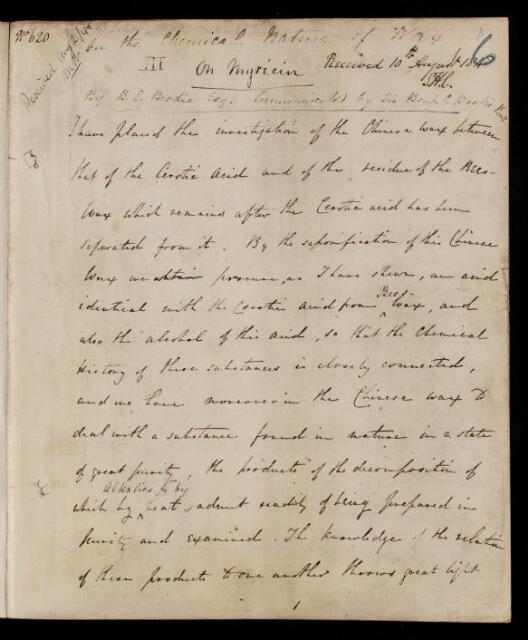 No 620
Received Aug 2/48
On the Chemical Nature of Wax
6
III
On Myricin
Received 10th August 1848
By B. C. Brodie Esq. Communicated by Sir Benj. C. Brodie Bart.
I have placed the investigation of the Chinese wax between
that of the Cerotic Acid and of the residue of the Bees-
Wax which remains after the Cerotic acid has been
separated from it. By the saponification of this Chinese
Wax we obtain procure, as I have shewn, an acid
identical with the Cerotic acid from Bees-Wax, and
also the alcohol of this acid, so that the Chemical
History of these substances is closely connected,
and we have moreover in the Chinese wax to
deal with a substance found in nature in a state
of great purity, the products of the decomposition of
which by alkalies & by heat admit readily of being prepared in
purity and examined. The knowledge of the relation
of these products to one another throws great light
1